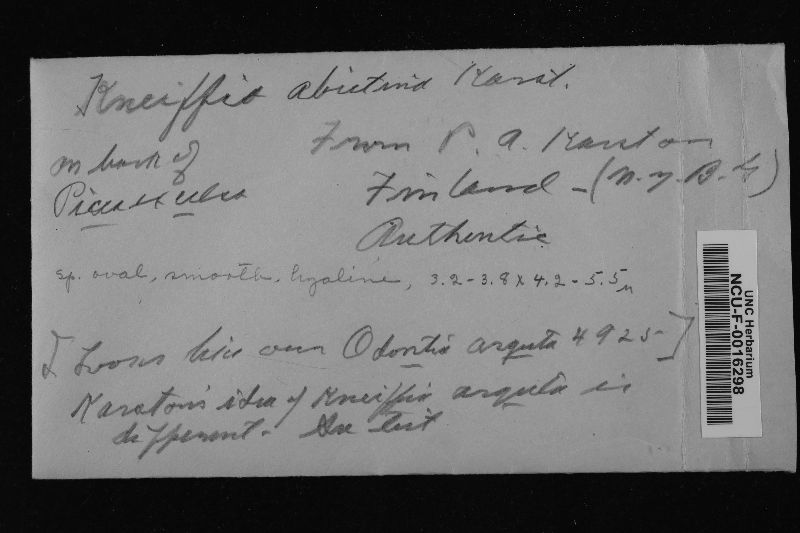 Kneiffia abietina Karst.
From P. A. Karsten
on bark of
Finland - (N.Y.B.G)
Picea excelsa
Authentic
sp. oval, smooth, hyaline, 3.2-3.8 x 4.2-5.5 µ
[Looks like our Odontia arguta 4925-]
Karsten's idea of Kneiffia arguta is
different - See list
UNC Herbarium
NCU-F-0016298